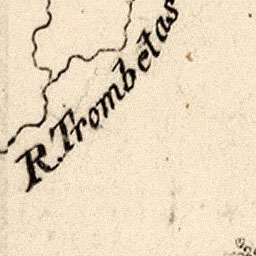 R. Trombetas